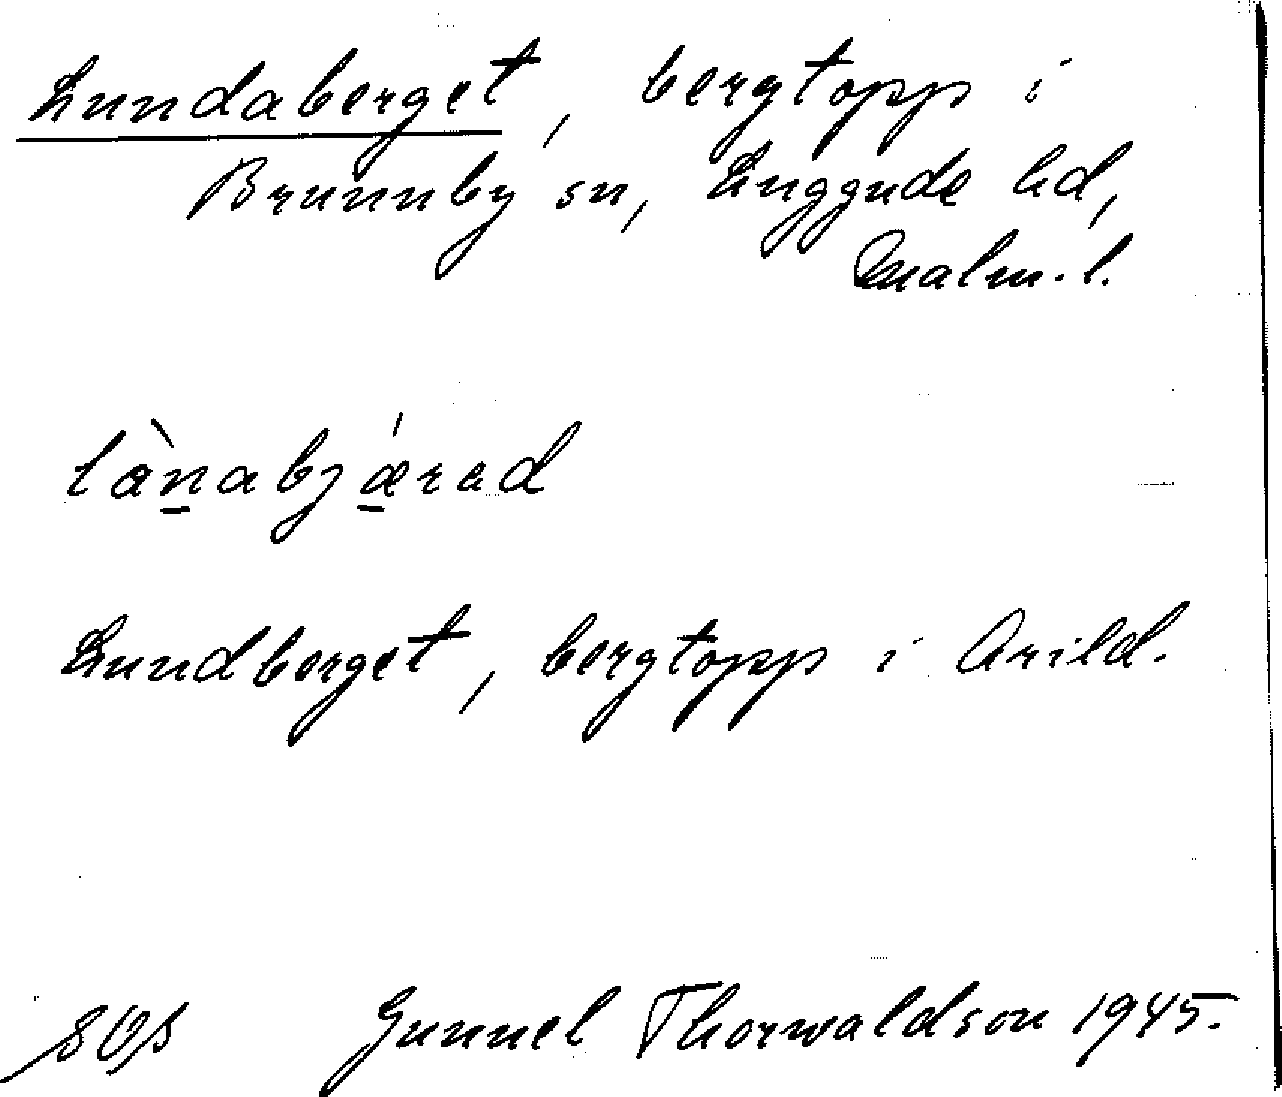 Lundaberget, bergtopp i
Brunnby sn, Luggude hd,
Malm. l.
lànabjǽrad
Lundberget, bergtopp i Arild.
Gunnel Thorwaldson 1945.